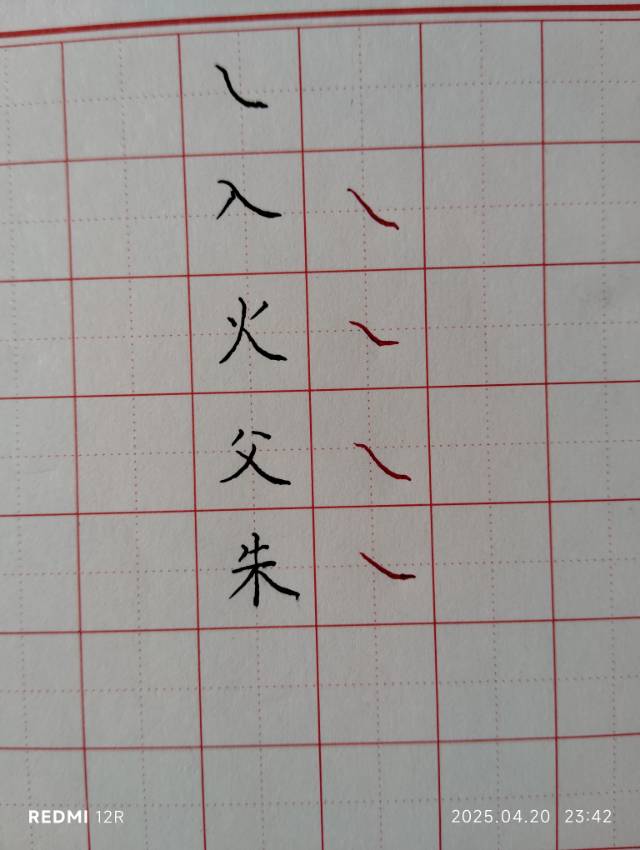 ㇏
入
火
父
朱
REDMI 12R
2025.04.20 23:42